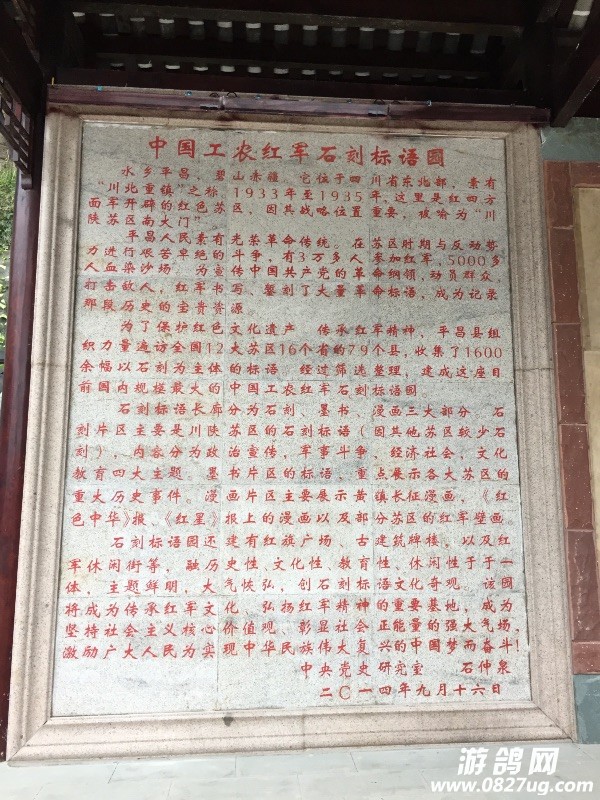 中国工农红军石刻标语园
水乡平昌，碧山赤疆。它位于四川省东北部，素有
“川北重镇”之称，1933年至1935年，这里是红四方
面军开辟的红色苏区，因其战略位置重要，被喻为“川
陕苏区南大门”。
平昌人民素有光荣革命传统。在苏区时期与反动势
力进行艰苦卓绝的斗争，有3万多人参加红军，5000多
人血染沙场。为宣传中国共产党的革命纲领，动员群众，
打击敌人，红军书写、錾刻了大量革命标语，成为记录
那段历史的宝贵资源。
为了保护红色文化遗产，传承红军精神，平昌县组
织力量遍访全国12大苏区16个省的79个县，收集了1600
余幅以石刻为主体的标语，经过筛选整理，建成这座目
前国内规模最大的中国工农红军石刻标语园
石刻标语长廊分为石刻、墨书、漫画三大部分。石
刻片区主要是川陕苏区的石刻标语（因其他苏区较少石
刻），内容分为政治宣传，军事斗争，经济社会，文化
教育四大主题。墨书片区的标语，重点展示各大苏区的
重大历史事件。漫画片区主要展示黄镇长征漫画，《红
色中华》报、《红星》报上的漫画以及部分苏区的红军壁画。
石刻标语园还建有红旗广场、古建筑牌楼，以及红
军休闲街等，融历史性、文化性、教育性、休闲性于于一
体，主题鲜明，大气恢弘，创石刻标语文化奇观。该园
将成为传承红军文化、弘扬红军精神的重要基地，成为
坚持社会主义核心价值观、彰显社会正能量的强大气场，
激励广大人民为实现中华民族伟大复兴的中国梦而奋斗！
中央党史研究室 石仲泉
二〇一四年九月十六日
游鸽网
www.0827ug.com